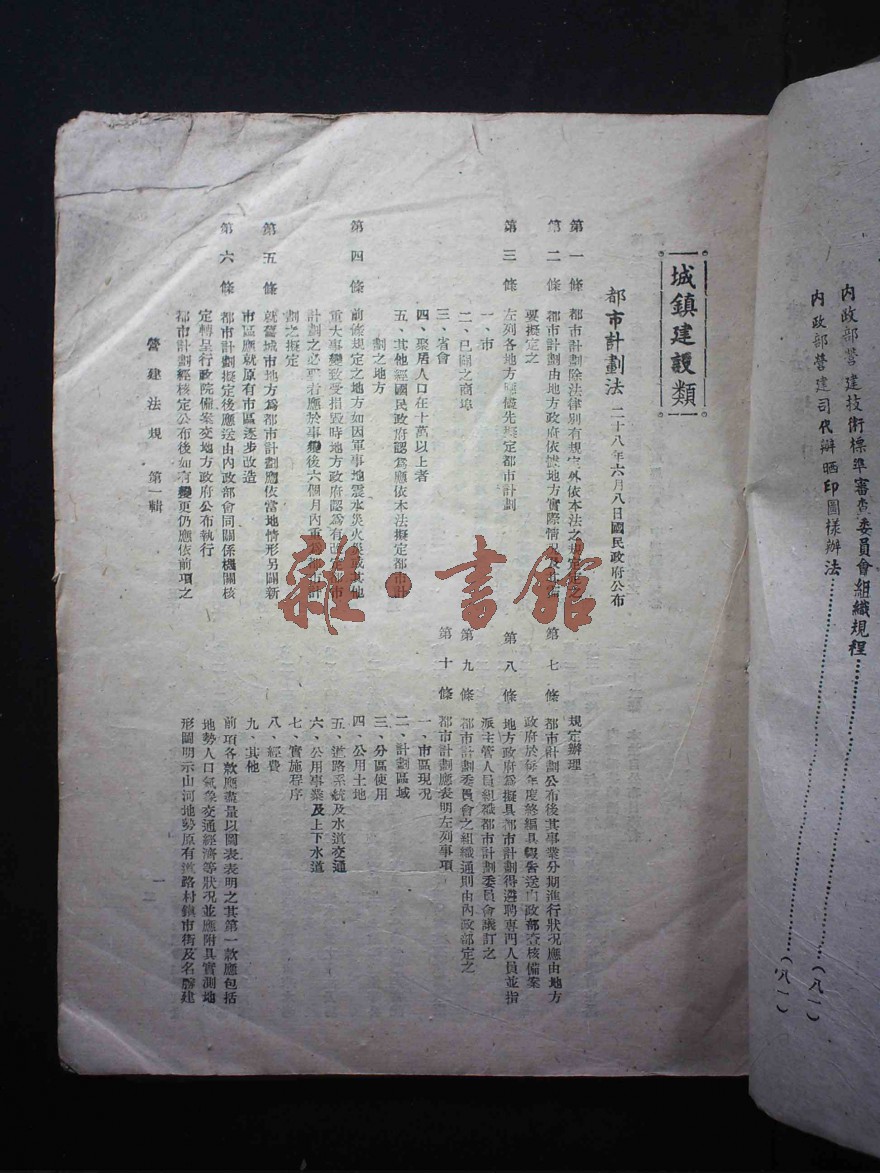 內政部營建技術標準審查委員會組織規程……(八一)
內政部營建司代辦晒印圖樣辦法……(八一)
城鎮建設類
都市計劃法 二十八年六月八日國民政府公布
第一條 都市計劃除法律別有規定外依本法之規定定之
第二條 都市計劃由地方政府依據地方實際情況及其需
要擬定之
第三條 左列各地方應儘先擬定都市計劃
一、市
二、已闢之商埠
三、省會
四、聚居人口在十萬以上者
五、其他經國民政府認為應依本法擬定都市計
劃之地方
第四條 前條規定之地方如因軍事地震水災火災或其他
重大事變致受損毀時地方政府認為有改定都市
計劃之必要者應於事變後六個月內重為都市計
劃之擬定
第五條 就舊城市地方為都市計劃應依當地情形另闢新
市區應就原有市區逐步改造
第六條 都市計劃擬定後應送由內政部會同關係機關核
定轉呈行政院備案交地方政府公布執行
都市計劃經核定公布後如有變更仍應依前項之
規定辦理
第七條 都市計劃公布後其事業分期進行狀況應由地方
政府於每年度終編具報告送內政部查核備案
第八條 地方政府為擬具都市計劃得遴聘專門人員並指
派主管人員組織都市計劃委員會議訂之
第九條 都市計劃委員會之組織通則由內政部定之
第十條 都市計劃應表明左列事項
一、市區現況
二、計劃區域
三、分區使用
四、公用土地
五、道路系統及水道交通
六、公用事業及上下水道
七、實施程序
八、經費
九、其他
前項各款應盡量以圖表表明之其第一款應包括
地勢人口氣象交通經濟等狀況並應附具實測地
形圖明示山河地勢原有道路村鎮市街及名勝建
營建法規 第一輯
雜·書館